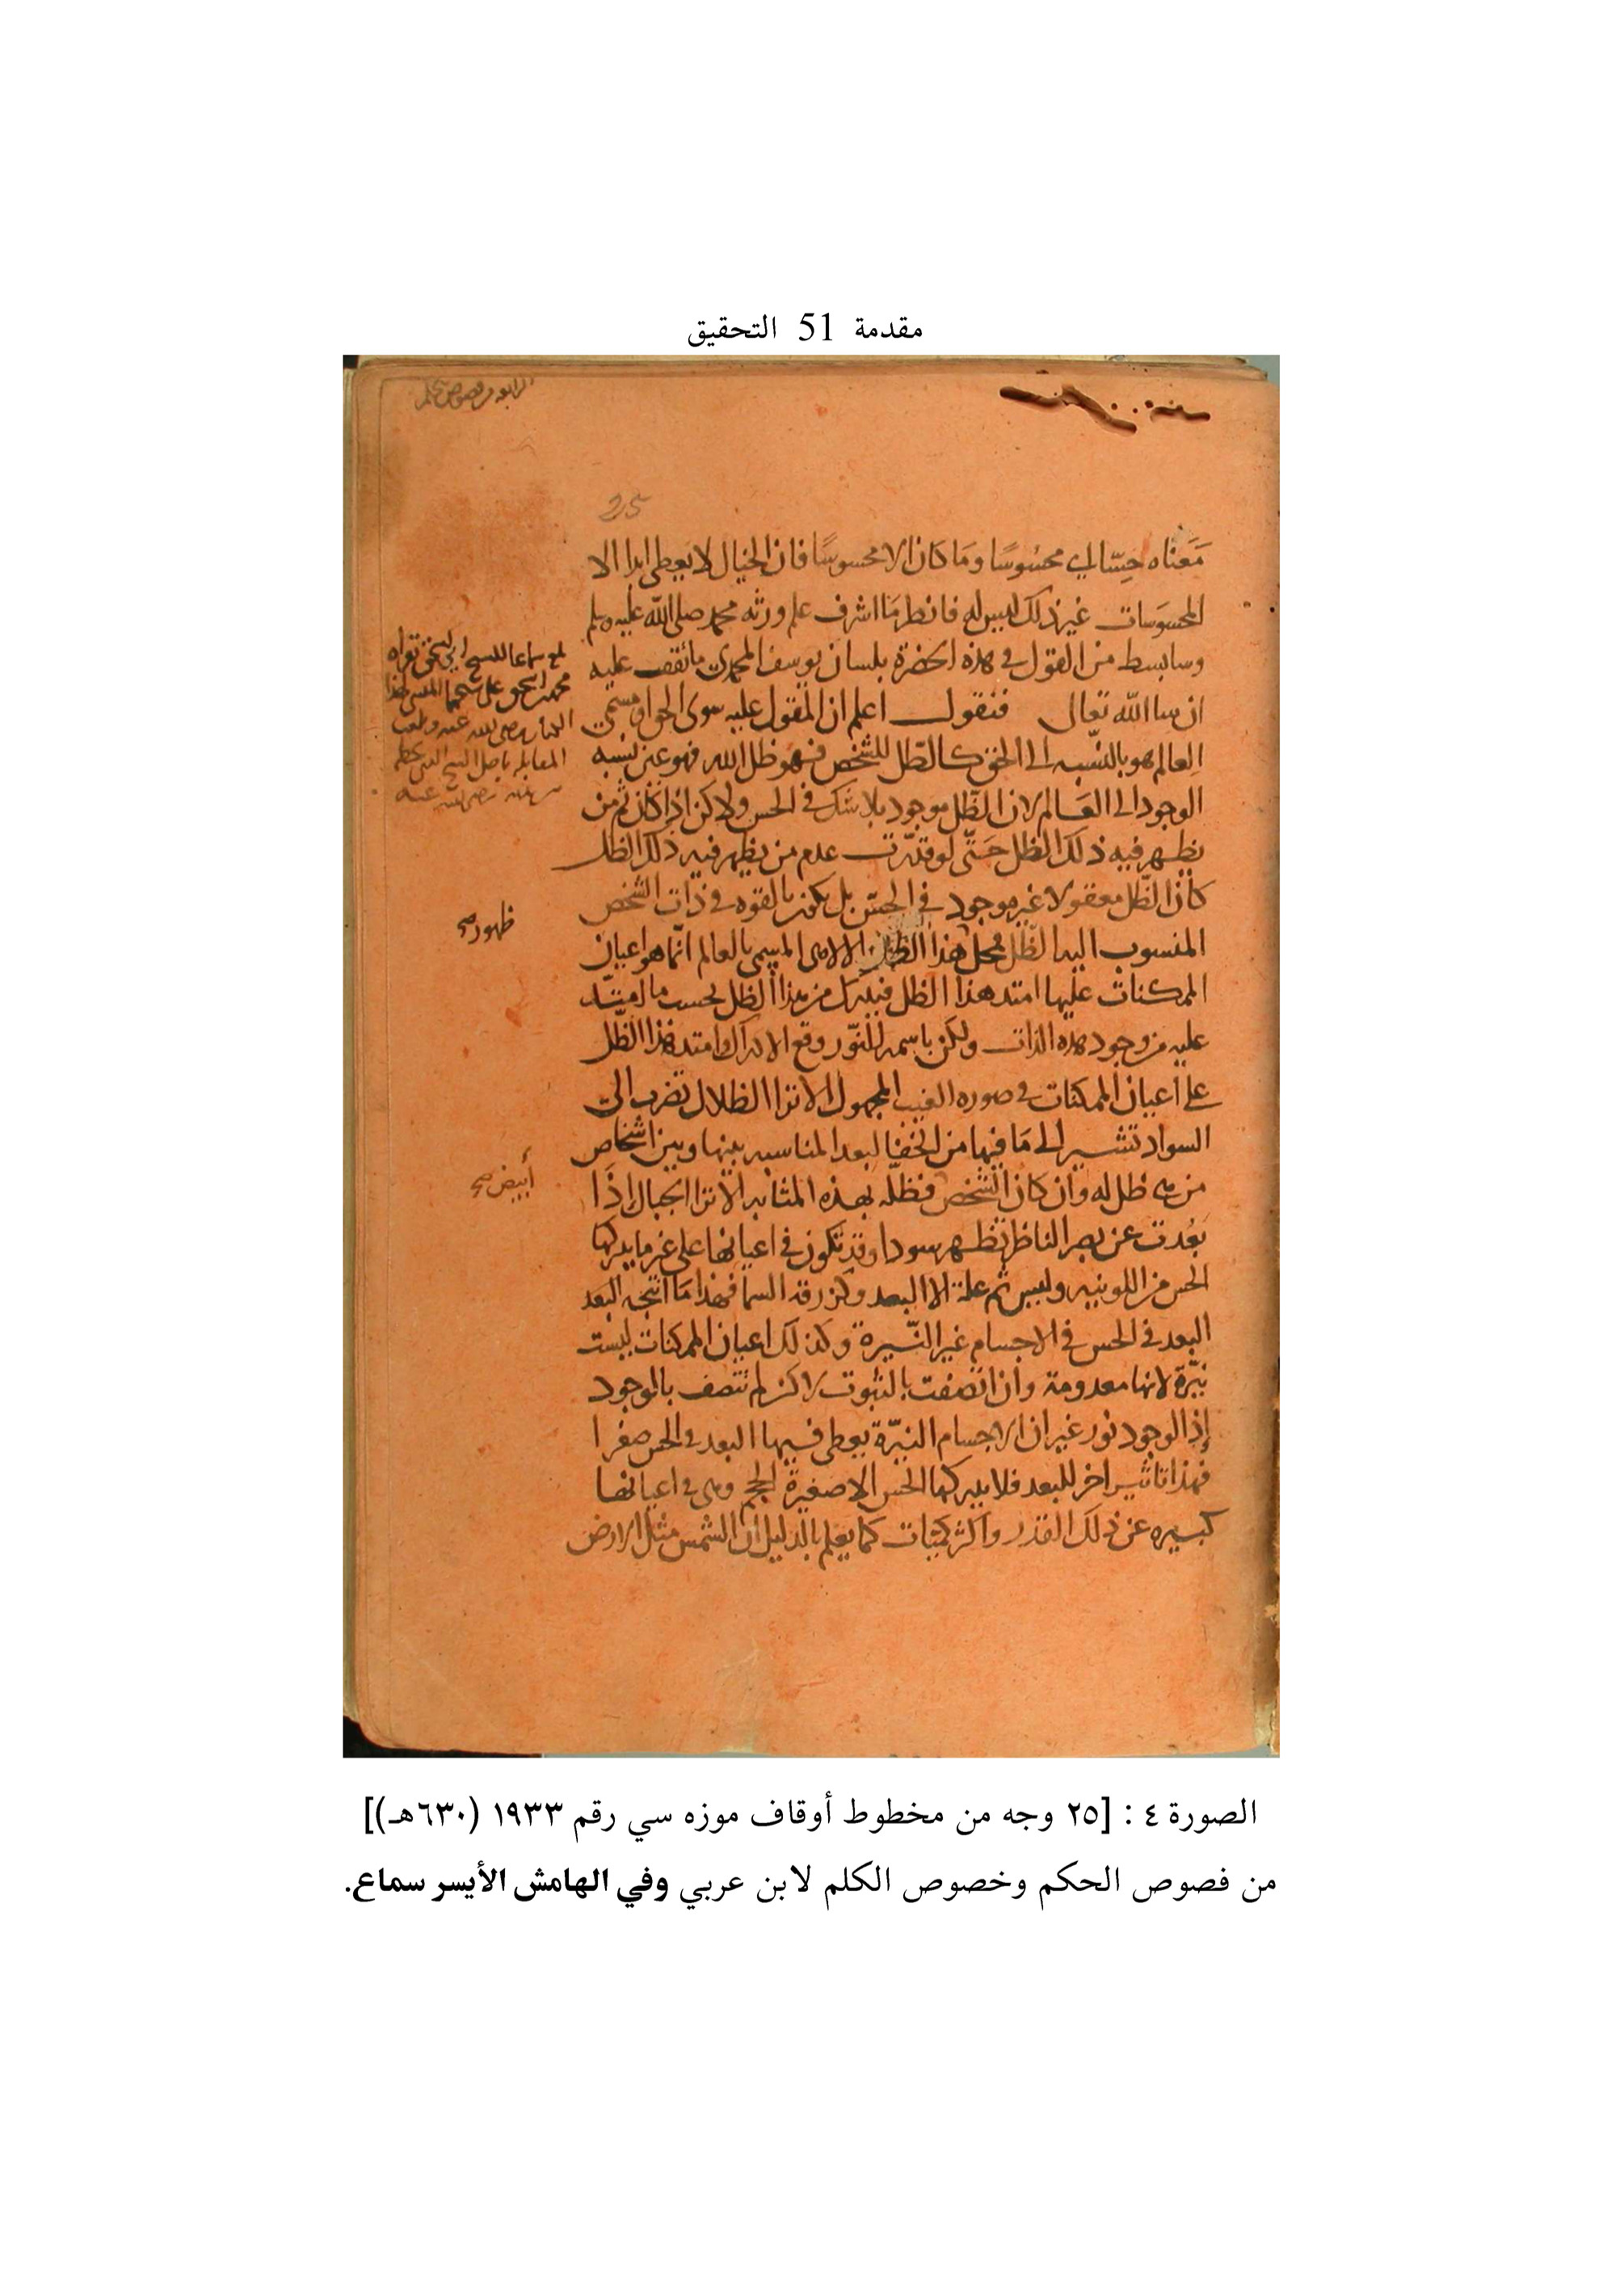 مقدمة 51 التحقيق
25
مَعناه حِسّا اي محسُوسًا ومَا كان الا محسوسًا فان الخيال لا يعطى ابدا الا
المحسوسات غير ذلك ليس له فانظر مَا اشرف علم ورثه محمد صلى الله عليه وسلم
وسابسط من القول في هذه الحضرة بلسان يوسف المحمدي ما تقف عليه
ان شا الله تعالى فنقول اعلم ان المقول عليه سوى الحق او مسمى
العالم هو بالنّسبه الى الحق كالظّل للشخص فهو ظل الله فهو عين نسبه
الوجود الى العَالم لان الظّل موجود بلا شك في الحس ولاكن اذا كان ثم من
يظهر فيه ذلك الظل حَتّى لو قدّرت عدم من يظهر فيه ذلك الظل
كان الظّل معقولا غير موجود في الحسّ بل يكون بالقوه في ذات الشخص
المنسوب اليه الظّل فمحل هذا الظل الالاهى المسمى بالعالم انّما هو اعيان
الممكنات عليها امتد هذا الظل فيدرك من هذا الظل بحسب ما امتدّ
عليه من وجود هذه الذات ولكن باسمه النّور وقع الادراك وامتد هذا الظّل
على اعيان الممكنات في صوره الغيب المجهول الا ترا الظلال تضرب الى
السواد تشير الى مَا فيها من الخفا لبعد المناسبه بينها وبين اشخاص
من هي ظل له وان كان الشخص فظلّه بهذه المثابه الا ترا الجبال اذَا
بَعُدت عن بصر الناظر تظهر سودا وقد تكون في اعيانها على غير ما يدركها
الحس من اللونيه وليس ثم علة الا البعد وكزرقه السما فهذا مَا انتجه البعد
البعد في الحس في الاجسام غير النّيرة وكذلك اعيان الممكنات ليست
نيّرة لانها معدومة وان اتصفت بالثبوت لاكن لم تتصف بالوجود
إذ الوجود نور غير ان الاجسام النيّرة يعطى فيها البعد في الحس صغرا
فهذا تاثير اخر للبعد فلا يدركها الحس الا صغيرة الحجم وهى في اعيانها
كبيره عن ذلك القدر واكثر كميّات كما يعلم بالدليل ان الشمس مثل الارض
ظهور صح
أبيض صح
الصورة ٤ : [٢٥ وجه من مخطوط أوقاف موزه سي رقم ١٩٣٣ (٦٣٠هـ)]
من فصوص الحكم وخصوص الكلم لابن عربي وفي الهامش الأيسر سماع.